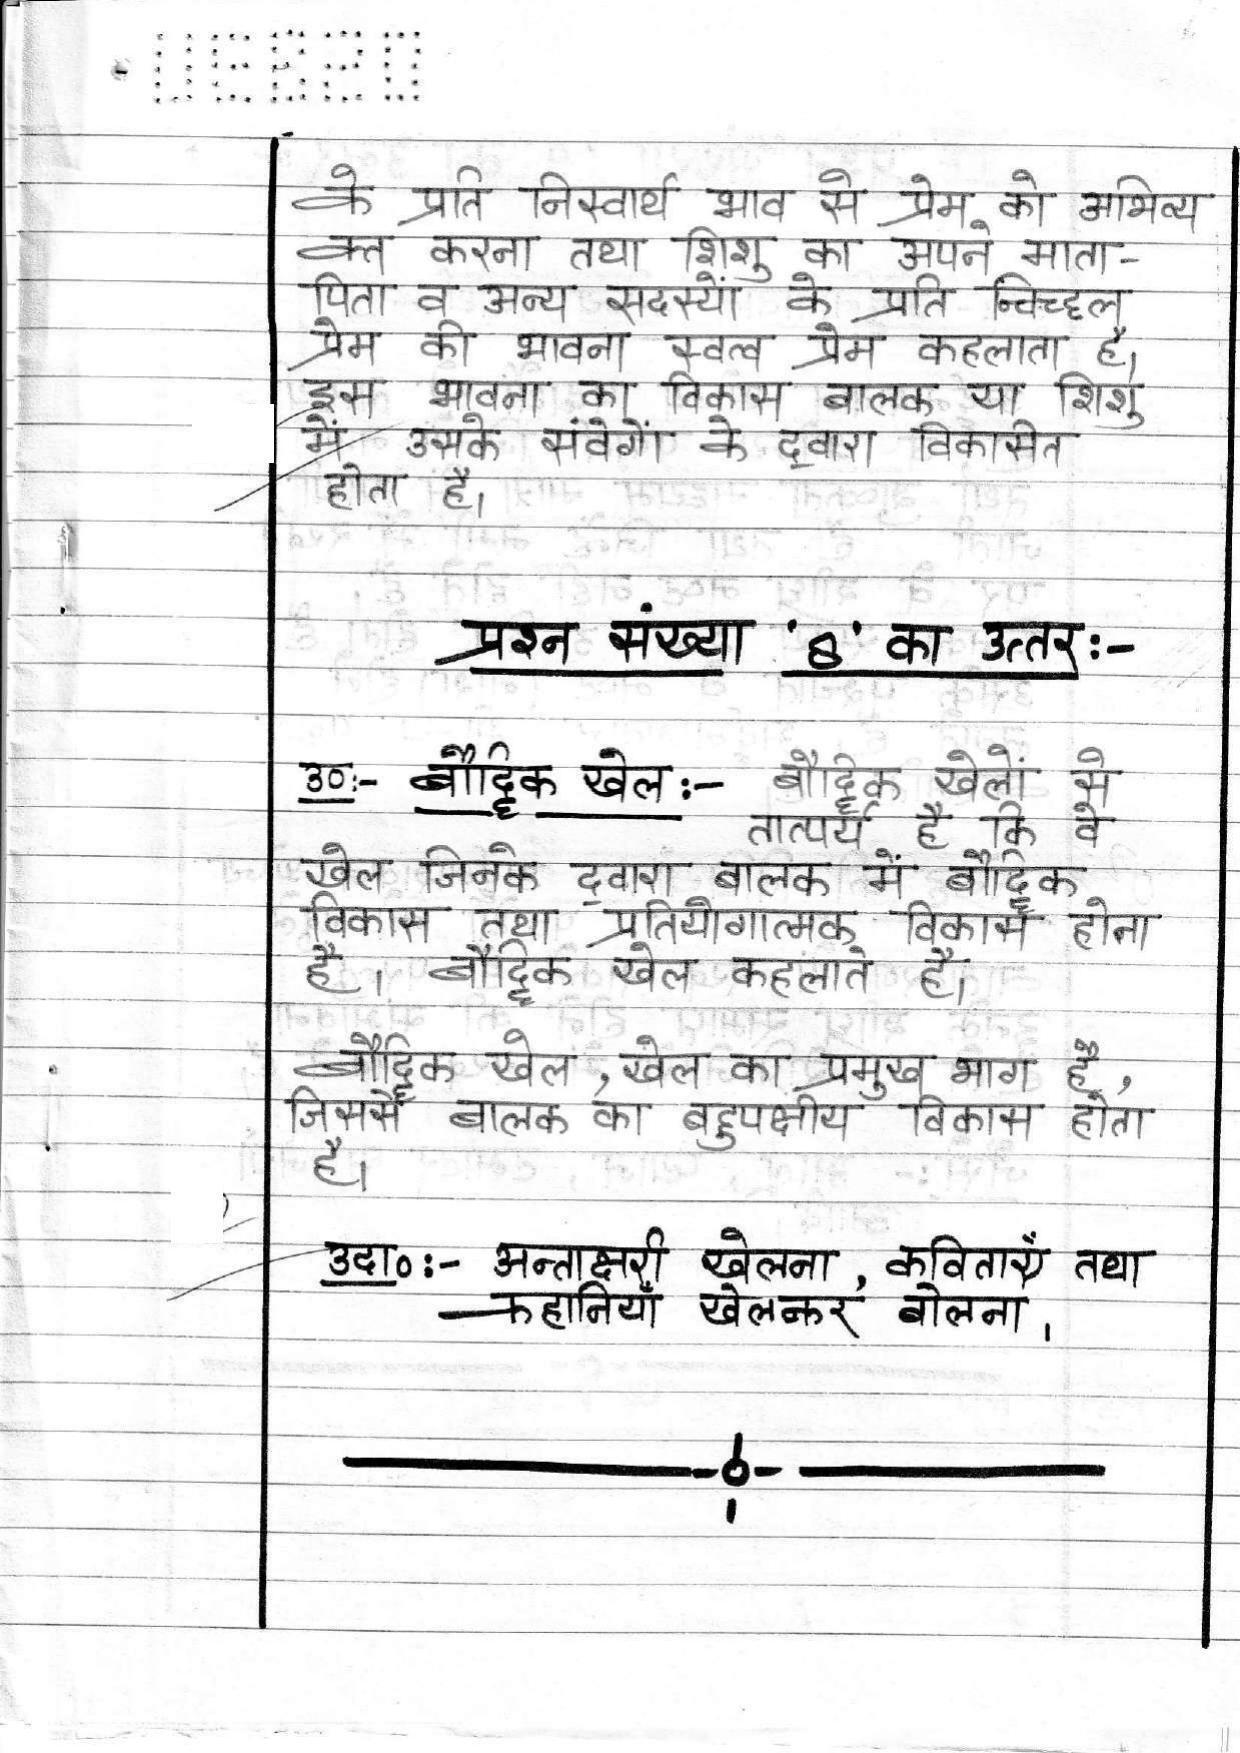 के प्रति निस्वार्थ भाव से प्रेम को अभिव्य
क्त करना तथा शिशु का अपने माता-
पिता व अन्य सदस्यों के प्रति निच्छल
प्रेम की भावना स्वत्व प्रेम कहलाता है।
इस भावना का विकास बालक या शिशु
में उसके संवेगों के द्वारा विकसित
होता है।
प्रश्न संख्या '8' का उत्तर:-
उ०:- बौद्धिक खेल:- बौद्धिक खेलों से
तात्पर्य है कि वे
खेल जिनके द्वारा बालक में बौद्धिक
विकास तथा प्रतियोगात्मक विकास होना
है। बौद्धिक खेल कहलाते है।
बौद्धिक खेल, खेल का प्रमुख भाग है,
जिससे बालक का बहुपक्षीय विकास होता
है।
उदा०:- अन्ताक्षरी खेलना, कविताएँ तथा
कहानियाँ खेलकर बोलना।